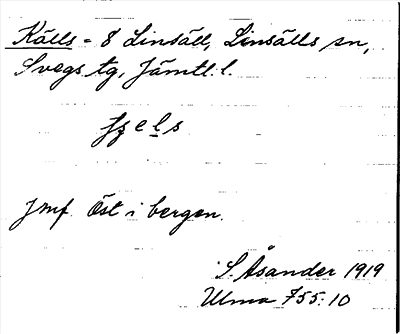 Källs - 8 Linsäll, Linsälls sn,
Svegs tg, Jämtl. l.
els
Jmf. Öst i bergen.
S. Åsander 1919
Ulma 755:10